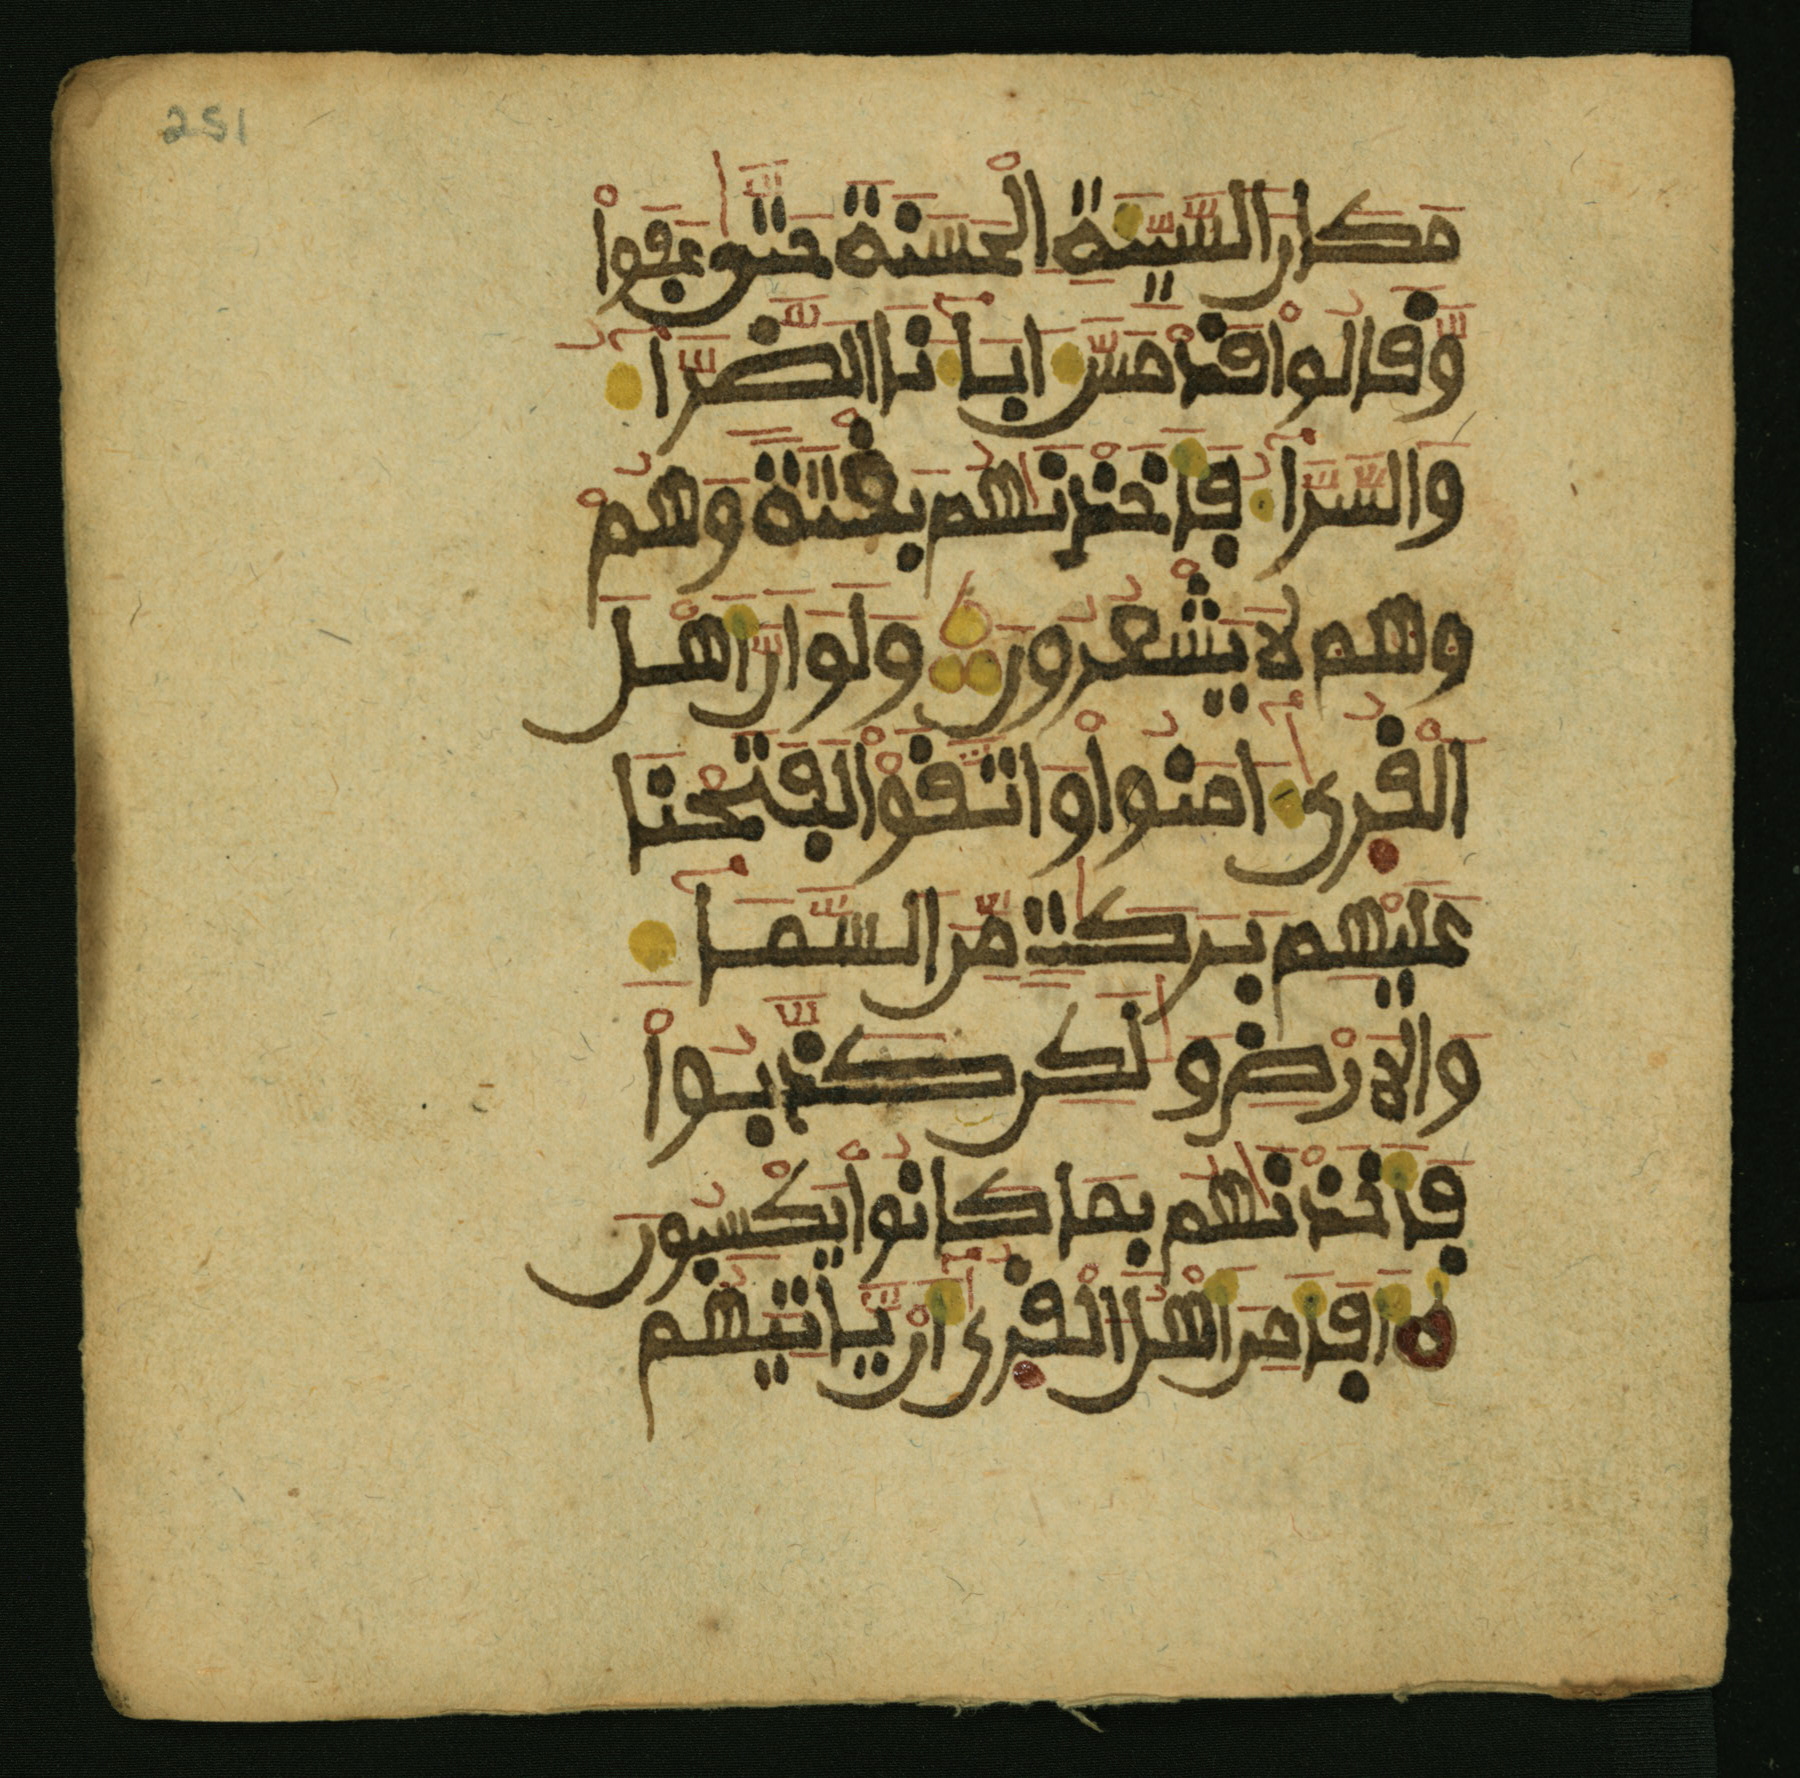 251
مَكَانَ السَّيِّئَةِ الْحَسَنَةَ حَتَّىٰ عَفَواْ
وَّقَالُواْ قَدْ مَسَّ ءَابَآءَنَا الضَّرَّآءُ
وَالسَّرَّآءُ فَأَخَذْنَٰهُم بَغْتَةً وَهُمْ
وهم لَا يَشْعُرُونَ وَلَوَ اَنَّ أَهْلَ
الْقُرَىٰٓ ءَامَنُواْ وَاتَّقَوْاْ لَفَتَحْنَا
عَلَيْهِم بَرَكَٰتٍ مِّنَ السَّمَآءِ
وَالَارْضِ وَلَٰكِن كَذَّبُواْ
فَأَخَذْنَٰهُم بِمَا كَانُواْ يَكْسِبُونَ
ه أَفَأَمِنَ أَهْلُ الْقُرَىٰٓ أَنْ يَّاتِيَهُم